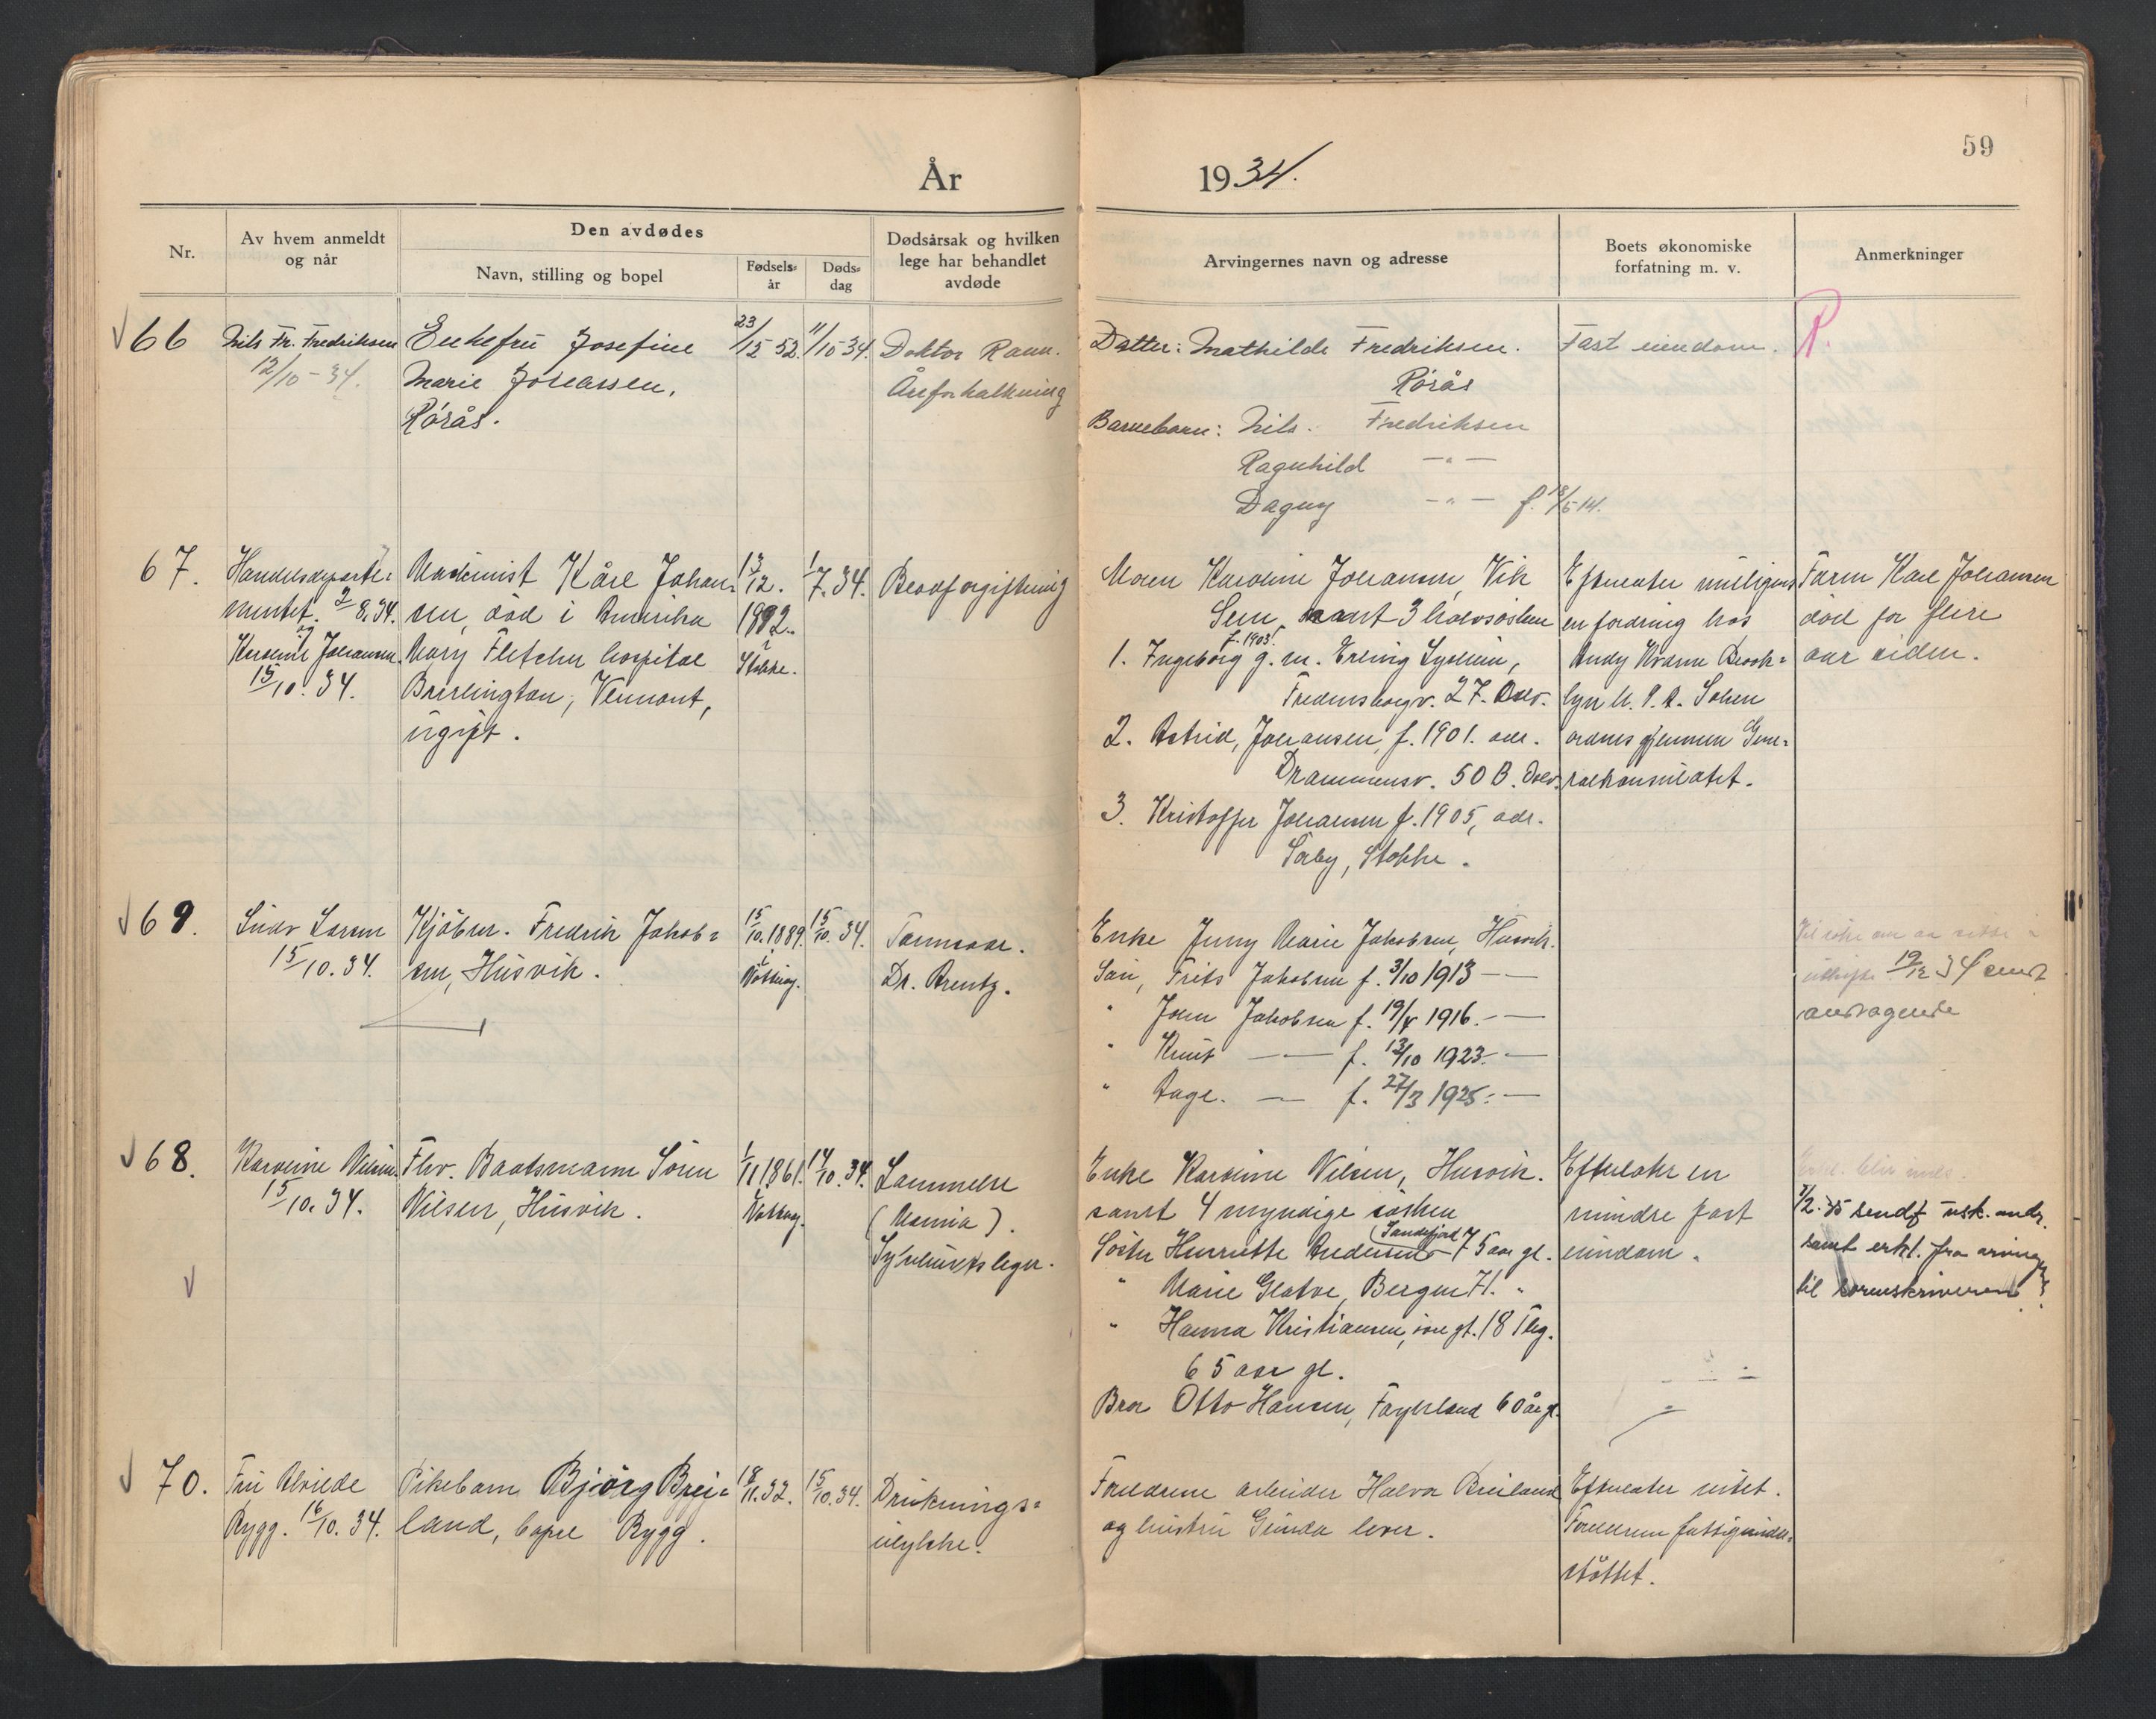 59
År 1934.
Nr.
Av hvem anmeldt
og når
Den avdødes
Navn, stilling og bopel
Fødsels-
år
Døds-
dag
Dødsårsak og hvilken
lege har behandlet
avdøde
Arvingernes navn og adresse
Boets økonomiske
forfatning m. v.
Anmerkninger
66
Nils Fr. Fredriksen
12/10-34.
Enkefru Josefine
Marie Joneassen,
Rørås.
23/12 52.
11/10-34.
Doktor Ravn.
Åreforkalkning
Datter: Mathilde Fredriksen.
Rørås
Barnebarn: Nils. Fredriksen
Ragnhild —"—
Dagny —"— f. 18/5 14.
Fast eiendom.
R.
67.
Handelsdeparte-
mentet. 2/8.34.
og
Karoline Johansen.
15/10.34.
Maskinist Kåre Johan-
sen, død i Amerika
Mary Fletcher hospital
Burlington, Vermont,
ugift.
13/12.
1892.
i
Stokke.
1/7.34.
Blodforgiftning
Moren Karoline Johansen, Vik
Sem, samt 3 halvsøsken
1. Ingeborg f. 1903 g. m. Erling Lysheim,
Fredensborgv. 27. Oslo.
2. Astrid, Johansen, f. 1901. adr.
Drammensv. 50 B. Oslo.
3. Kristoffer Johansen f. 1905, adr.
Sørby, Stokke.
Efterlater muligens
en fordring hos
Andy Brook-
lyn U. S. A. Saken
ordnes gjennem Gene-
ralkonsulatet.
Faren Karl Johansen
død for flere
aar siden.
69.
Larsen
15/10.34.
Kjøbm. Fredrik Jakob-
sen, Husvik.
15/10.1889.
i
Nøtterøy.
15/10.34.
Tarmsaar.
Dr. Arentz.
Enke Jenny Marie Jakobsen, Husvik.
Søn, Frits Jakobsen f. 3/10 1913 — —
" John Jakobsen f. 19/4 1916. — —
" Knut — — f. 13/10 1923. —
" Aage. — f. 27/3 1925. —
19/12 34 sendt
andragende
68.
Karoline Nilsen
15/10.34.
Fhv. Baatsmann Søren
Nilsen, Husvik.
1/11 1861.
i
Nøtterøy.
14/10.34.
Lammelse
Sykehuslegen.
Enke Karoline Nilsen, Husvik.
samt 4 myndige søsken
Søster Henriette Andersen (Sandefjord) 75 aar gl.
" Marie Bergen 71. "
" Hanna Kristiansen, 18 Tbg.
65 aar gl.
Bror Otto Hansen, Fagerland 60 år gl.
Efterlater en
mindre fast
eiendom.
1/2.35 sendt usk. andr.
samt erkl. fra arvinger
til sorenskriveren
70.
Fru Alvilde
Rygg. 16/10.34.
Pikebarn Bjørg Brei-
land, bopel Rygg.
18/11.32.
15/10.34.
Druknings-
ulykke.
Foreldrene arbeider Halvor Breiland
og hustru Gunda lever.
Efterlater intet.
Foreldrene fattigunder-
støttet.